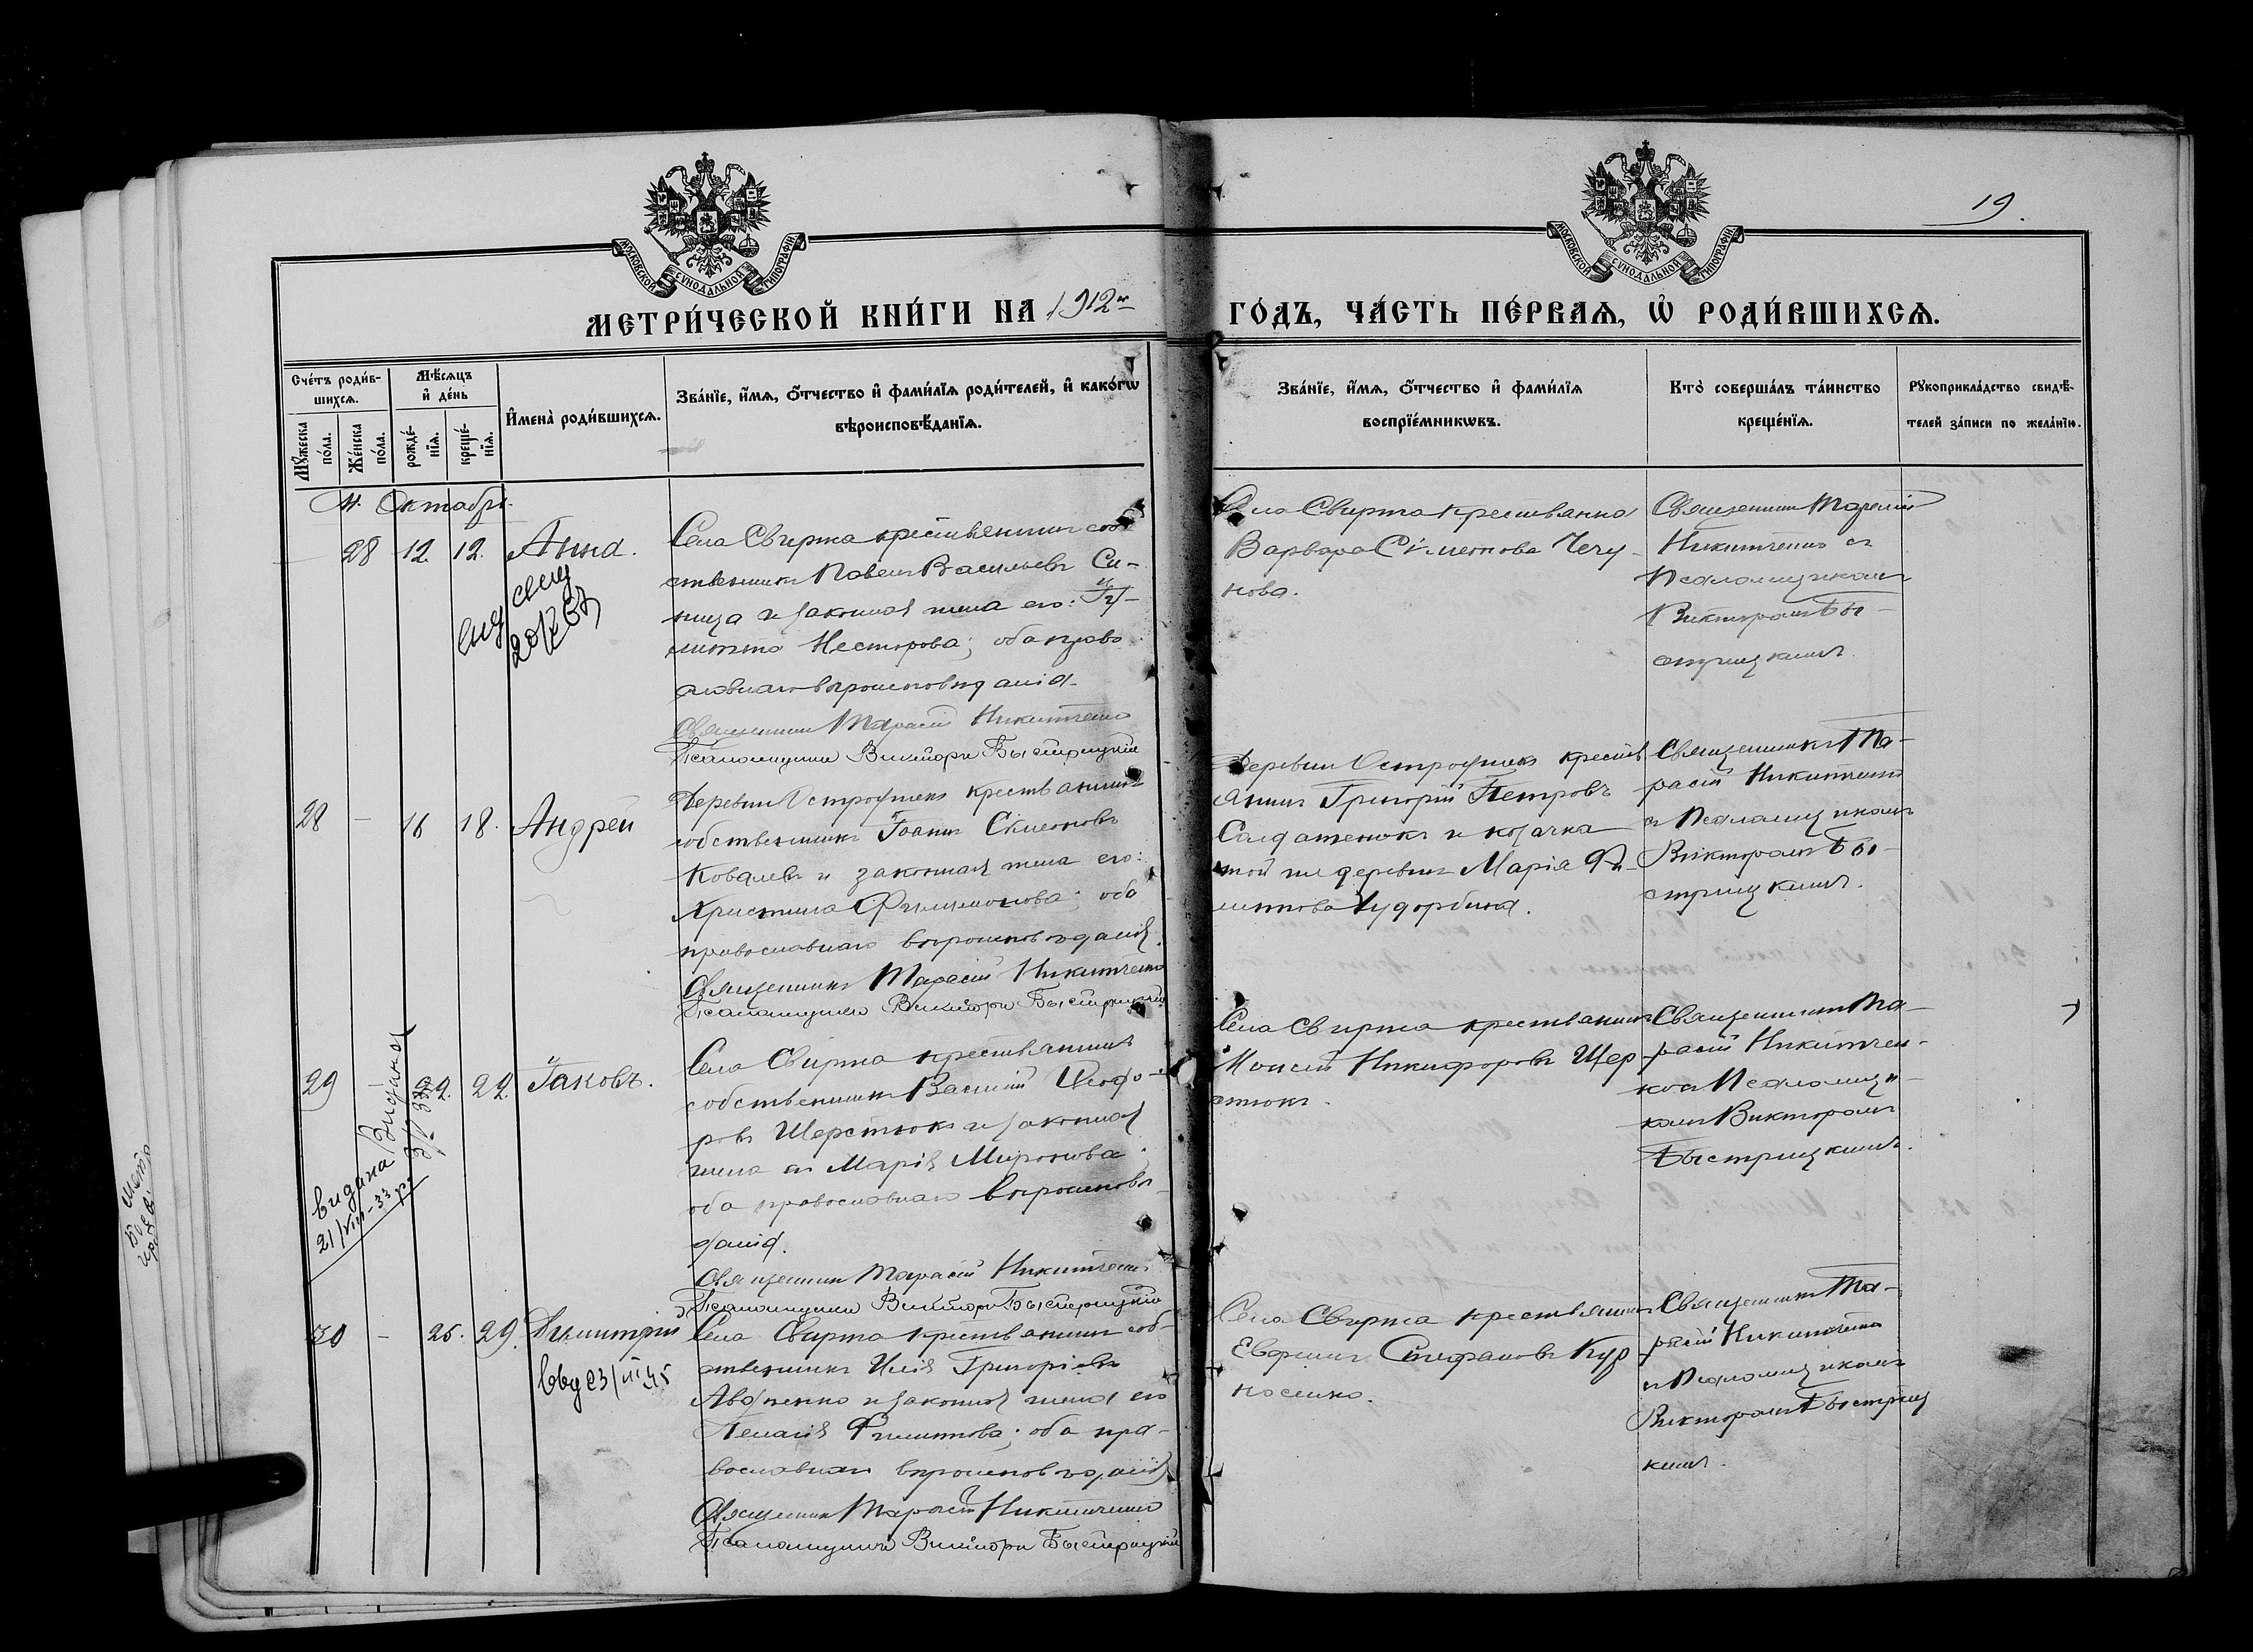 19.
МОСКОВСКОЙ СѴНОДАЛЬНОЙ ТИПОГРАФІИ
МОСКОВСКОЙ СѴНОДАЛЬНОЙ ТИПОГРАФІИ
МЕТРИ́ЧЕСКОЙ КНИ́ГИ НА 1912й
ГО́ДЪ, ЧА́СТЬ ПЕ́РВАѦ, Ѡ҆ РОДИ́ВШИХСѦ.
Сче́тъ роди́в-
шихсѧ.
Мꙋ́жеска по́ла.
Же́нска по́ла.
Мѣ́сѧцъ
и҆ де́нь
рожде́-
нїѧ.
креще́-
нїѧ.
И҆мена̀ роди́вшихсѧ.
Зва́нїе, и҆́мѧ, ѻ҆́тчество и҆ фами́лїѧ роди́телей, и҆ како́гѡ
вѣроисповѣ́данїѧ.
Зва́нїе, и҆́мѧ, ѻ҆́тчество и҆ фами́лїѧ
воспрїе́мникѡвъ.
Кто̀ соверша́лъ та́инство
креще́нїѧ.
Рꙋкоприкла́дство свидѣ́-
телей за́писи по жела́нїю.
М. Октябрь.
28 12. 12. Анна.
Села Свирта крестьянинъ соб
ственникъ Павелъ Васильевъ Си-
ница и законная жена его:
Нестерова; оба право
славнаго вѣроисповѣданія
Священникъ Тарасій Никитченко
Псаломщикъ Викторъ Быстрицкій
Села Свирта крестьянка
Варвара Симеонова Чегу-
нова.
Священникъ Тарасій
Никитченко съ
Псаломщикомъ
Викторомъ Бы-
стрицкимъ.
28 - 16 18. Андрей
Деревни Остроушекъ крестьянинъ
собственникъ Іоаннъ Симеоновъ
Ковалевъ и законная жена его:
Христина Филимонова; оба
православнаго вѣроисповѣданія.
Священникъ Тарасій Никитченко
Псаломщикъ Викторъ Быстрицкій
Деревни Остроушекъ кресть
янинъ Григорій Петровъ
Салдатенокъ и козачка
той же деревни Марія Фи-
липпова
Священникъ Та-
расій Никитченко
съ Псаломщикомъ
Викторомъ Бы-
стрицкимъ.
29 - 22. 22. Іаковъ.
видана
21/VIII-33 р.
Села Свирта крестьянинъ
собственникъ Василій Ѳеодо-
ровъ Шерстюкъ и законная
жена его Марія Миронова;
оба православнаго вѣроисповѣ-
данія.
Священникъ Тарасій Никитченко
Псаломщикъ Викторъ Быстрицкій
Села Свирта крестьянинъ
Моисей Никифоровъ Шер
стюкъ.
Священникъ Та-
расій Никитчен-
ко съ Псаломщи-
комъ Викторомъ
Быстрицкимъ.
30 - 25. 29. Димитрій
Села Свирта крестьянинъ соб-
ственникъ Илія Григоріевъ
и законная жена его
Пелагія Филиппова; оба пра-
вославнаго вѣроисповѣданія
Священникъ Тарасій Никитченко
Псаломщикъ Викторъ Быстрицкій
Села Свирта крестьянинъ
Стефановъ Кур
носенко.
Священникъ Та-
расій Никитченко
съ Псаломщикомъ
Викторомъ Быстриц
кимъ.